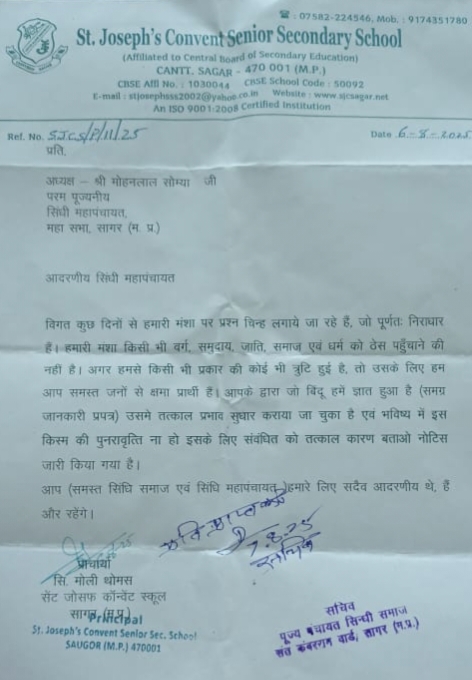 ☎ : 07582-224546, Mob. : 9174351780
St. Joseph's Convent Senior Secondary School
(Affiliated to Central Board of Secondary Education)
CANTT. SAGAR - 470 001 (M.P.)
CBSE Affl No. : 1030044 CBSE School Code : 50092
E-mail : stjosephsss2002@yahoo.co.in Website : www.sjcsagar.net
An ISO 9001-2008 Certified Institution
Ref. No. SJCS/P/11/25 Date 6-8-2025
प्रति,
अध्यक्ष – श्री मोहनलाल सोम्या जी
परम पूज्यनीय
सिंधी महापंचायत,
महा सभा, सागर (म. प्र.)
आदरणीय सिंधी महापंचायत
विगत कुछ दिनों से हमारी मंशा पर प्रश्न चिन्ह लगाये जा रहे हैं, जो पूर्णतः निराधार
हैं। हमारी मंशा किसी भी वर्ग, समुदाय, जाति, समाज एवं धर्म को ठेस पहुँचाने की
नहीं है। अगर हमसे किसी भी प्रकार की कोई भी त्रुटि हुई है, तो उसके लिए हम
आप समस्त जनों से क्षमा प्रार्थी हैं। आपके द्वारा जो बिंदू हमें ज्ञात हुआ है (समग्र
जानकारी प्रपत्र) उसमे तत्काल प्रभाव सुधार कराया जा चुका है एवं भविष्य में इस
किस्म की पुनरावृत्ति ना हो इसके लिए संबंधित को तत्काल कारण बताओ नोटिस
जारी किया गया है।
आप (समस्त सिंधि समाज एवं सिंधि महापंचायत )हमारे लिए सदैव आदरणीय थे, हैं
और रहेंगे।
7.8.25
प्राचार्या
सि. मोली थोमस
सेंट जोसफ कॉन्वेंट स्कूल
सागर (म.प्र.)
Principal
St. Joseph's Convent Senior Sec. School
SAUGOR (M.P.) 470001
सचिव
पूज्य पंचायत सिन्धी समाज
संत कंवरराम वार्ड, सागर (म.प्र.)